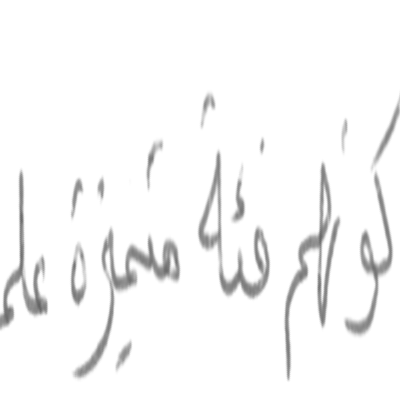 كونهم فئة متميزة علم